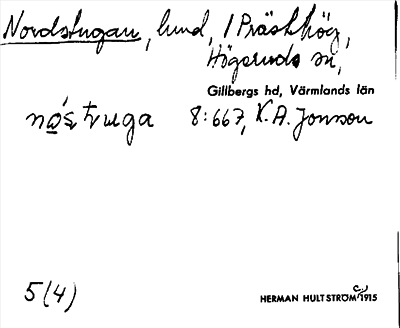 Nordstugan, lund, 1 Prästhög,
Högeruds sn,
Gillbergs hd, Värmlands län
8:667, K. A. Jonsson
5(4)
HERMAN HULTSTRÖM 1915